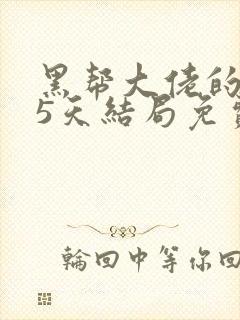 黑帮大佬的
5天结局免
輪回中等你回